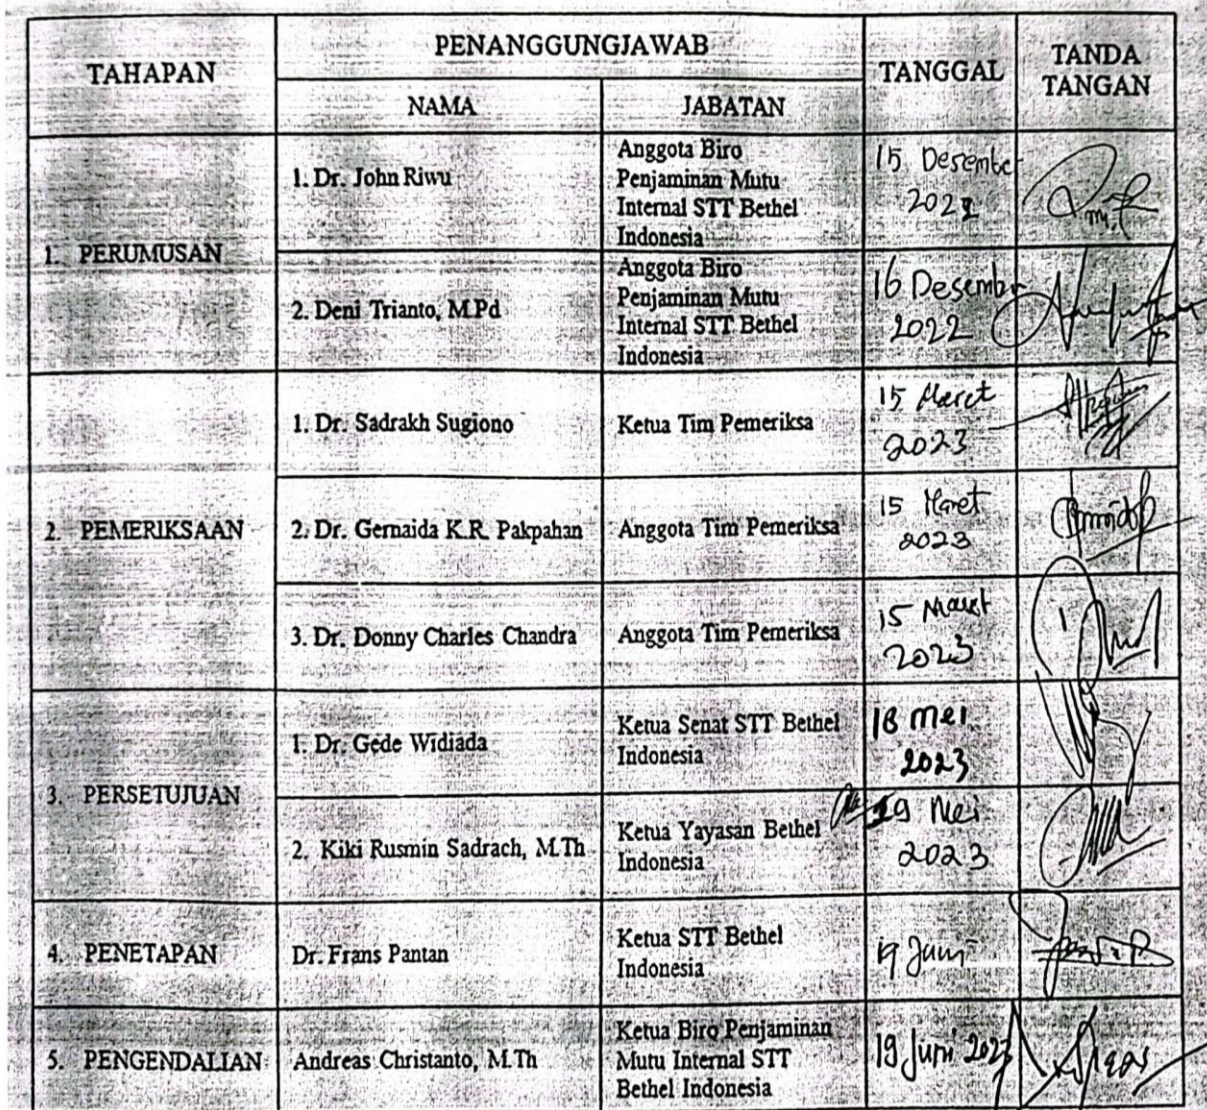 TAHAPAN
PENANGGUNGJAWAB
NAMA
JABATAN
TANGGAL
TANDA
TANGAN
1. PERUMUSAN
1. Dr. John Riwu
Anggota Biro
Penjaminan Mutu
Internal STT Bethel
Indonesia
15 Desembe
2022
2. Deni Trianto, M.Pd
Anggota Biro
Penjaminan Mutu
Internal STT Bethel
Indonesia
16 Desembr
2022
2. PEMERIKSAAN
1. Dr. Sadrakh Sugiono
Ketua Tim Pemeriksa
15 Maret
2023
2. Dr. Gernaida K.R. Pakpahan
Anggota Tim Pemeriksa
15 Maret
2023
3. Dr. Donny Charles Chandra
Anggota Tim Pemeriksa
15 Maret
2023
3. PERSETUJUAN
1. Dr. Gede Widiada
Ketua Senat STT Bethel
Indonesia
18 mei
2023
2. Kiki Rusmin Sadrach, M.Th
Ketua Yayasan Bethel
Indonesia
29 Mei
2023
4. PENETAPAN
Dr. Frans Pantan
Ketua STT Bethel
Indonesia
19 Juni
5. PENGENDALIAN
Andreas Christanto, M.Th
Ketua Biro Penjaminan
Mutu Internal STT
Bethel Indonesia
19 Juni 2023